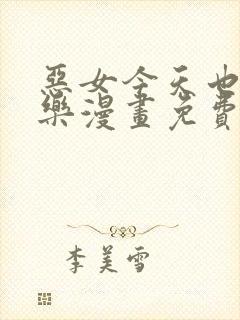 惡女今天也
樂漫畫免費
李美雪